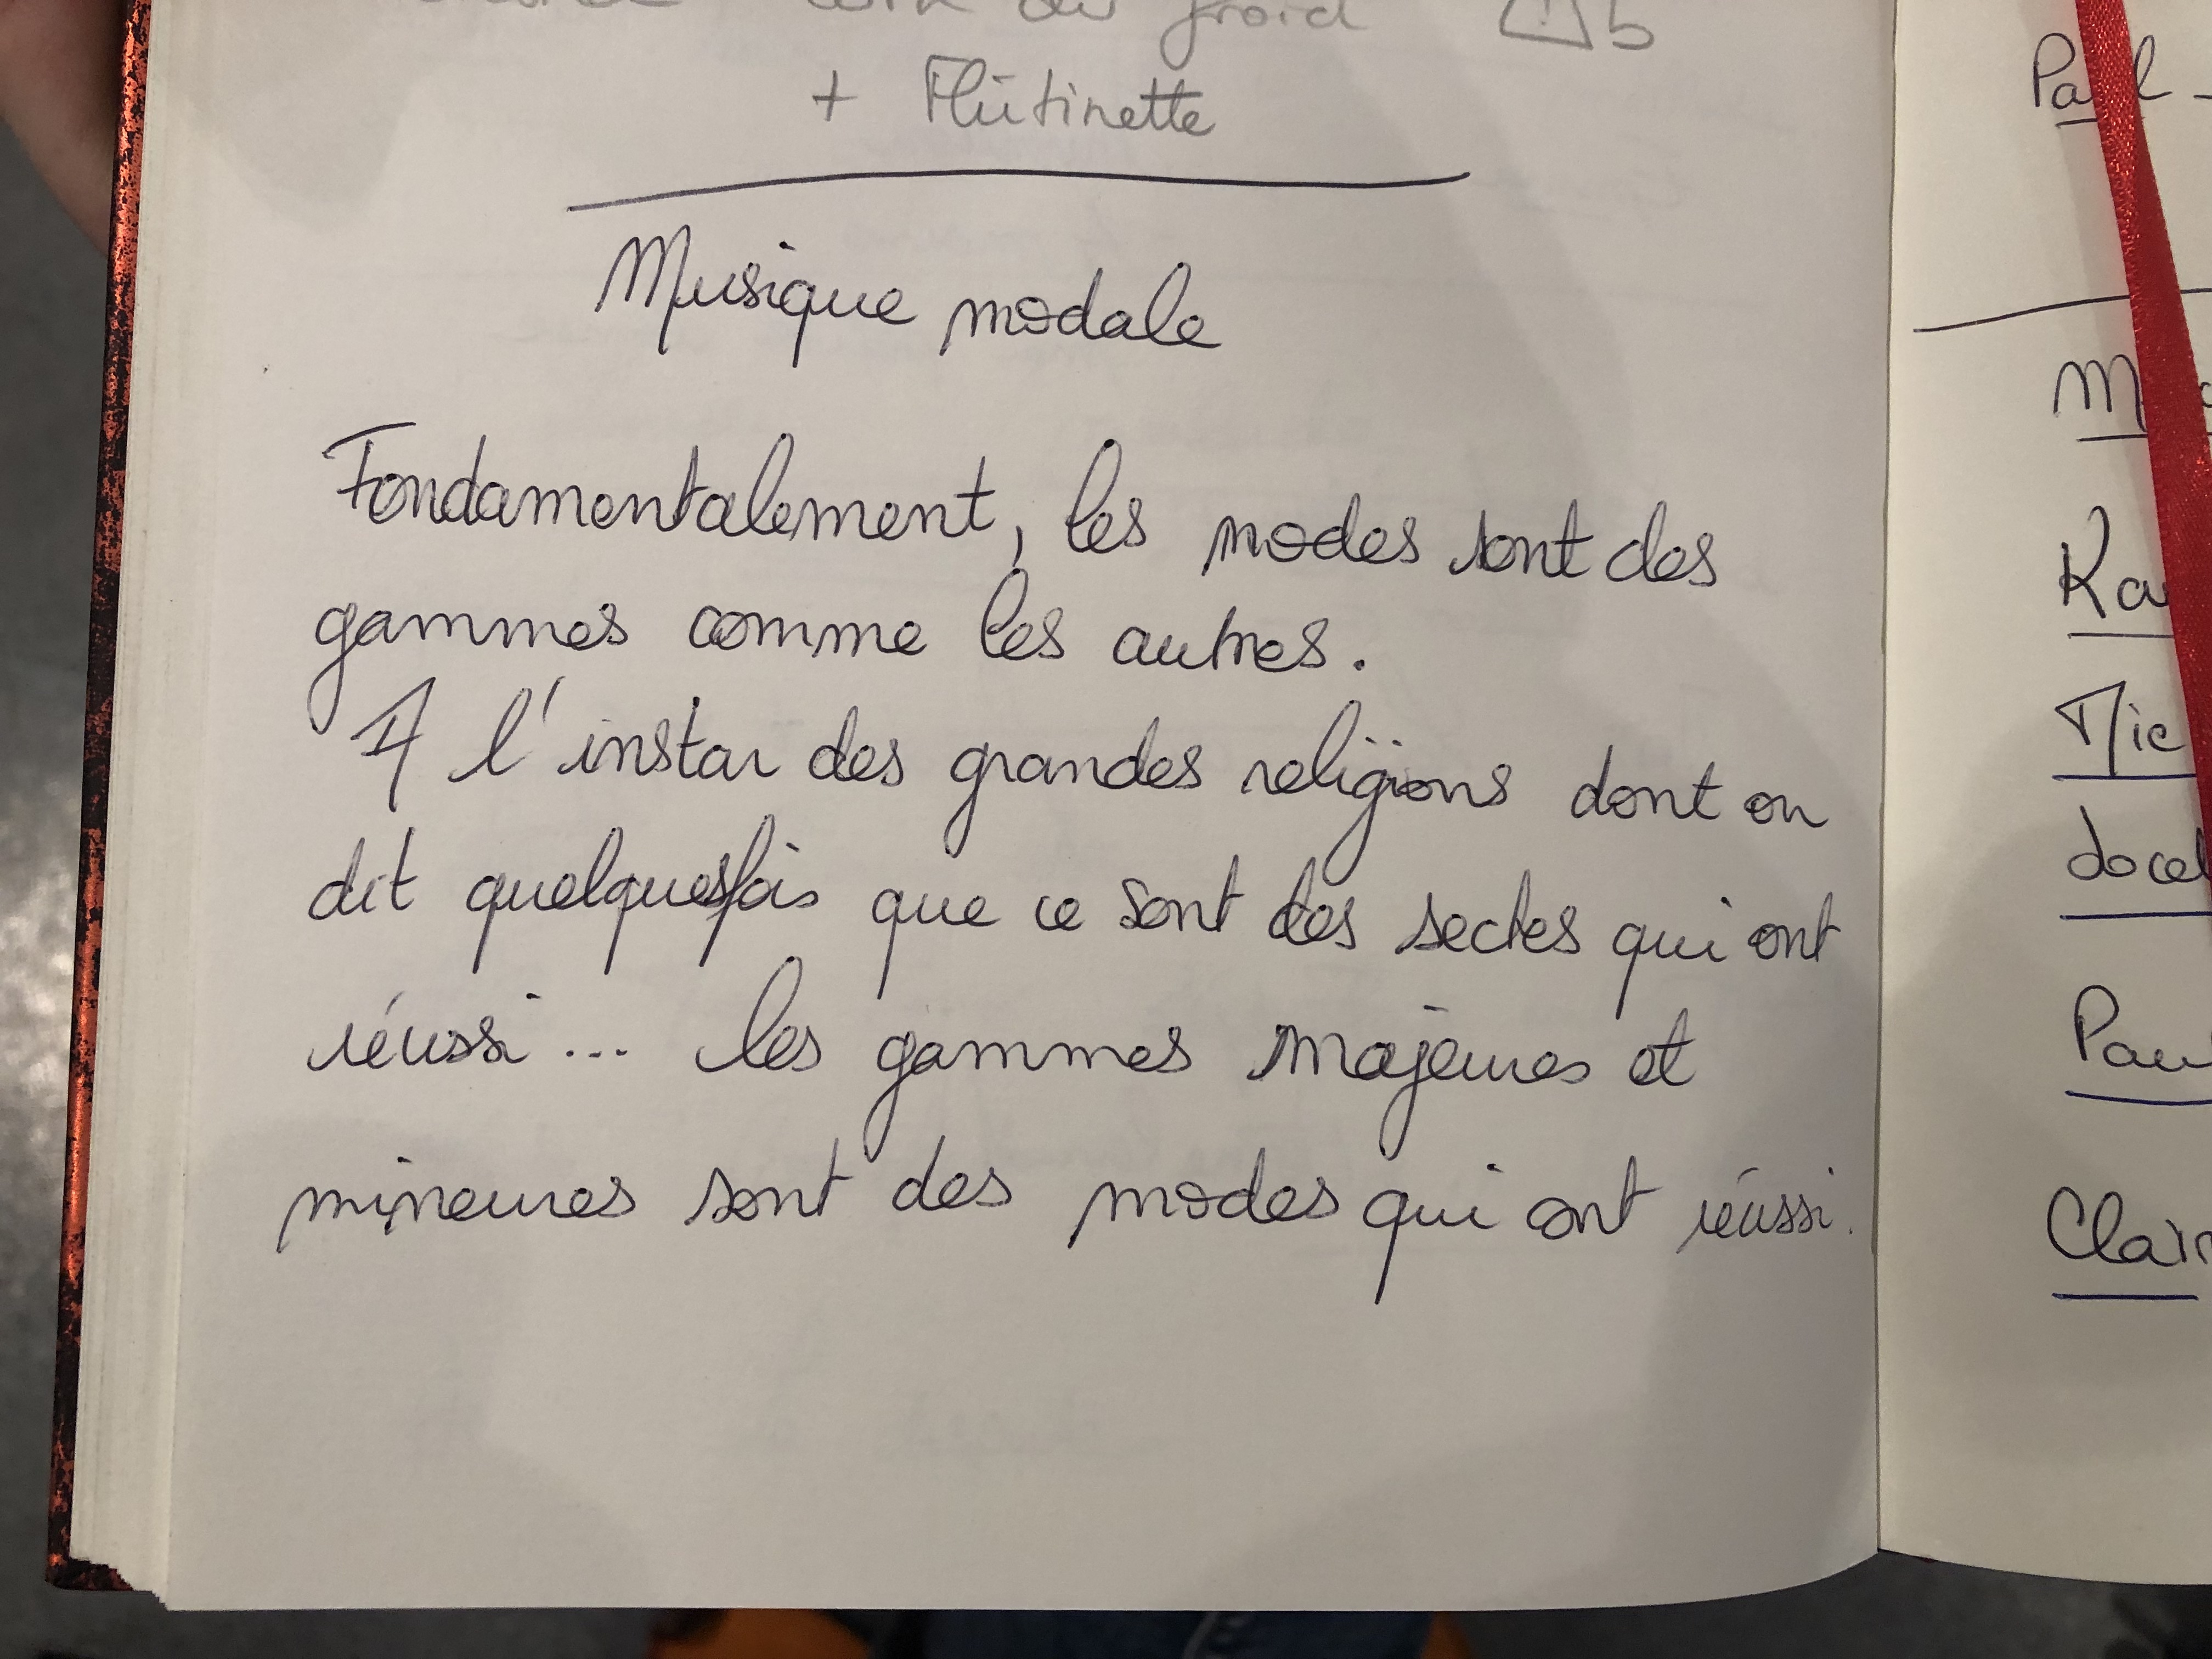 du froid
+ Flûtinette
Musique modale
Fondamentalement, les modes sont des
gammes comme les autres.
A l'instar des grandes religions dont on
dit quelquesfois que ce sont des sectes qui ont
réussi... les gammes majeures et
mineures sont des modes qui ont réussi.
Paul -
M
Ka
Mic
Jocel
Pau
Clair